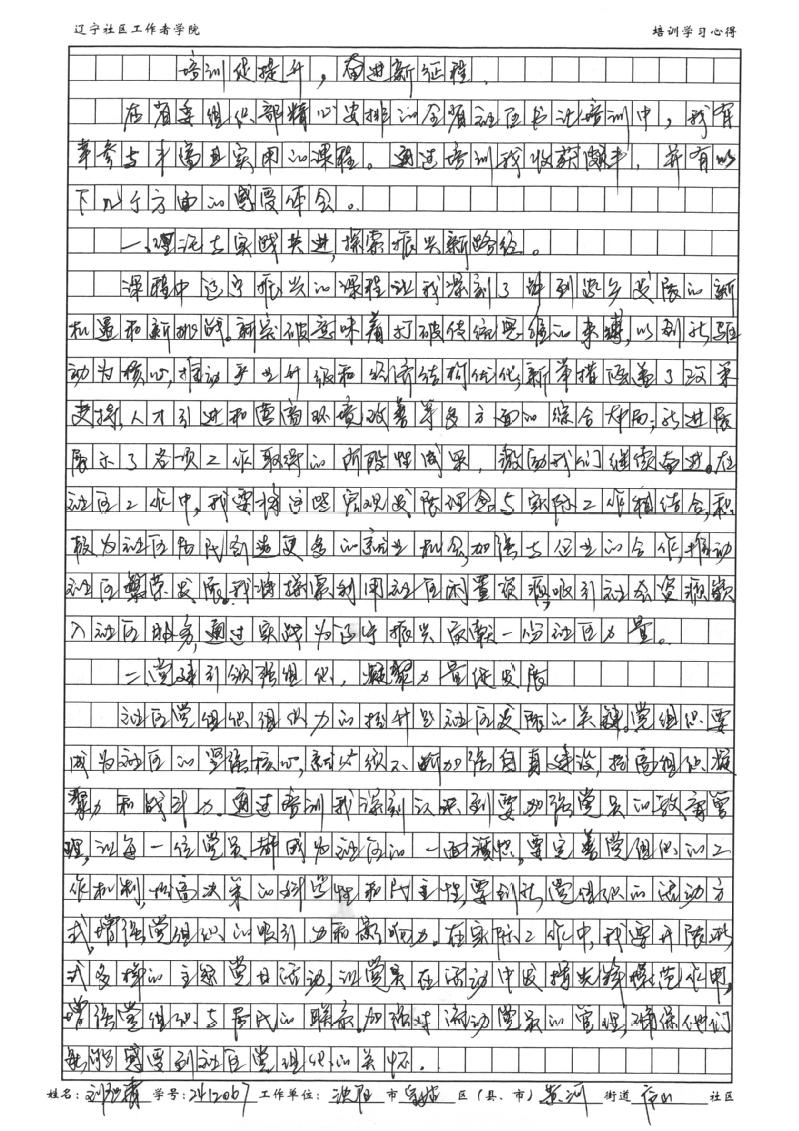 辽宁社区工作者学院 培训学习心得
培训促提升，奋进新征程
在省委组织部精心安排的全省社区书记培训中，我有
幸参与丰富且实用的课程。通过培训我收获颇丰，并有以
下几个方面的感受体会。
一、理论与实践共进，探索振兴新路径。
课程中辽宁振兴的课程让我深刻了解到遼乡发展的新
机遇和新挑战。新突破意味着打破传统思维的束缚，以创新驱
动为核心，推动产业升级和经济结构优化，新举措涵盖了政策
支持、人才引进和营商环境改善等多方面的综合布局；新进展
展示了各项工作取得的阶段性成果，激励我们继续奋进。在
社区工作中，我要将这些宏观发展理念与实际工作相结合，积
极为社区居民创造更多的就业机会，加强与企业的合作，推动
社区繁荣发展。我将探索利用社区闲置资源，吸引社会资源数
入社区服务，通过实践为辽宁振兴贡献一份社区力量。
二、党建引领强组织，凝聚力量促发展
社区党组织组织力的提升是社区发展的关键。党组织要
成为社区的坚强核心，就必须不断加强自身建设，提高组织凝
聚力和战斗力。通过培训我深刻认识到要加强党员的教育管
理，让每一位党员都成为社区的一面旗帜，要完善党组织的工
作机制，提高决策的科学性和民主性，要创新党组织的活动方
式，增强党组织的吸引力和影响力。在实际工作中，我要开展形
式多样的主题党日活动，让党员在活动中发挥先锋模范作用，
增强党组织与居民的联系，加强对流动党员的管理，确保他们
能够感受到社区党组织的关怀。
姓名： 学号：2412067 工作单位：沈阳 市 皇姑 区（县、市） 黄河 街道 社区